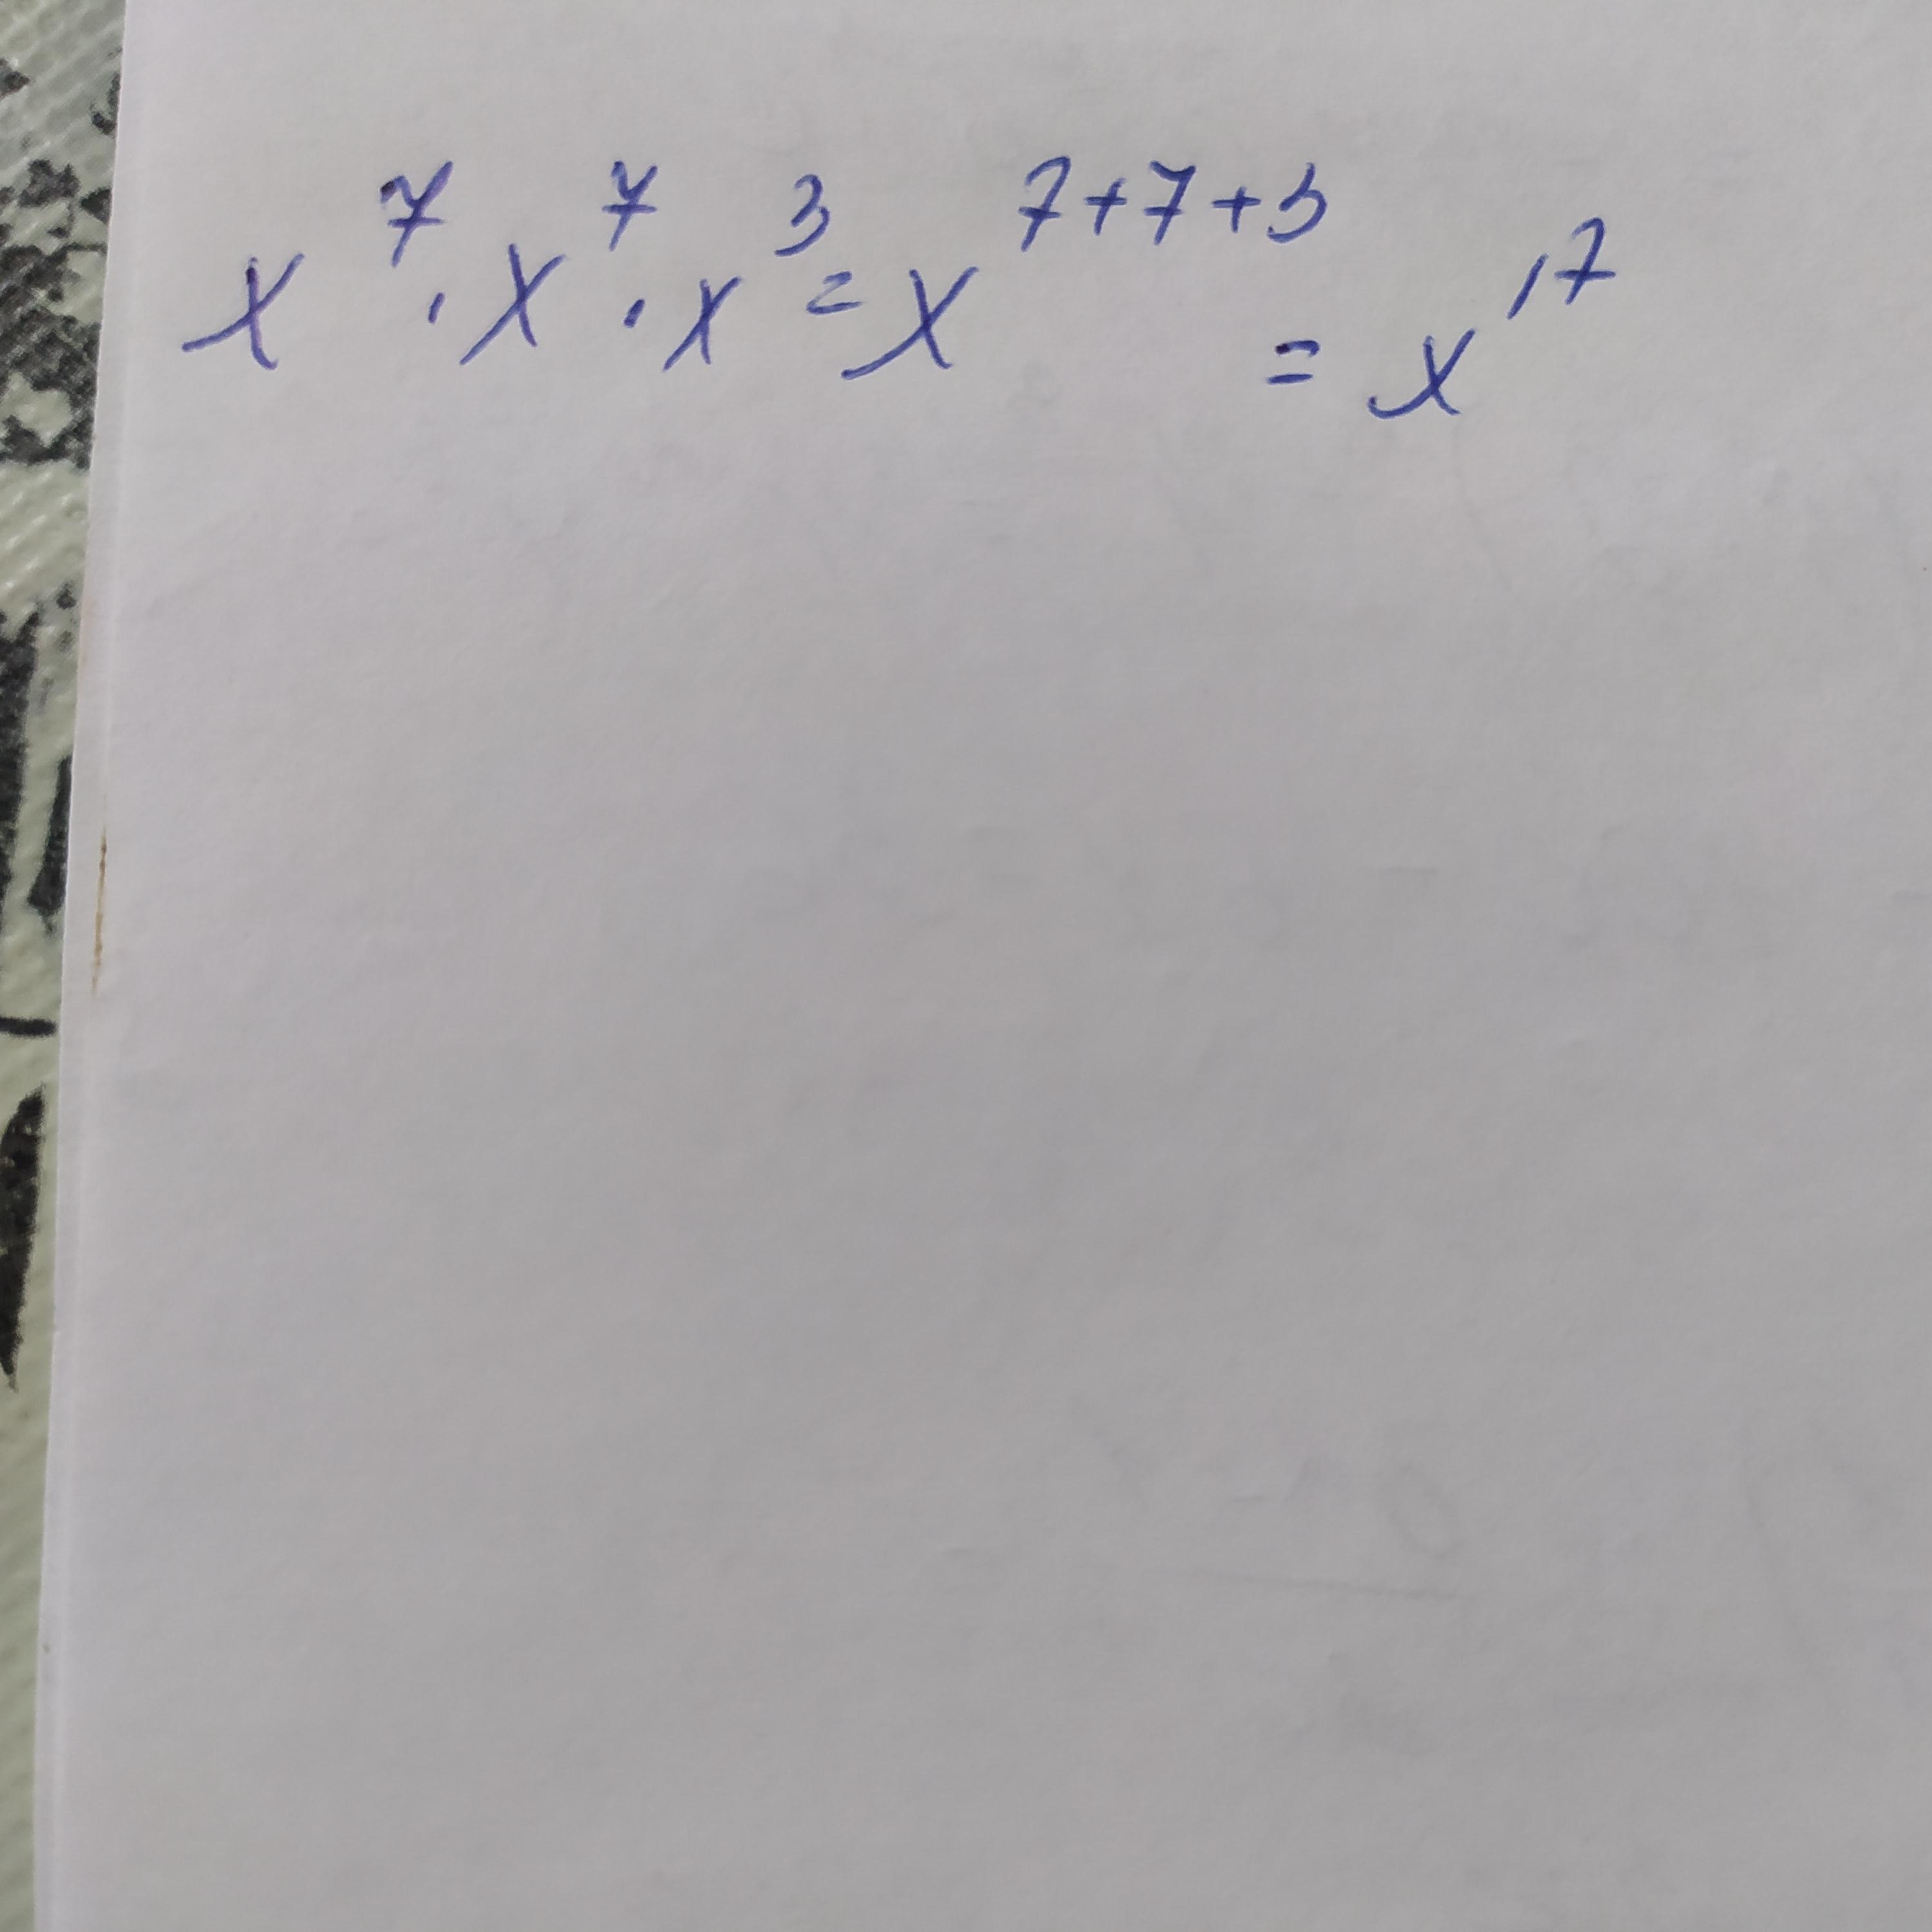 x⁷ · x⁷ · x³ = x⁷⁺⁷⁺³ = x¹⁷